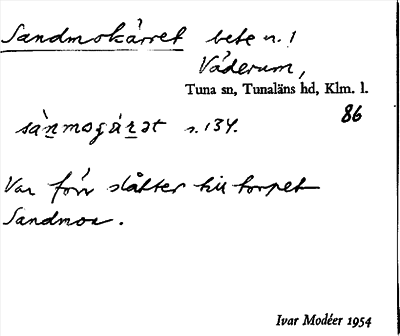 Sandmokärret bete n. 1
Väderum,
Tuna sn, Tunaläns hd, Klm. l.
86
sànmogár̲ət s. 134.
Var förr slåtter till torpet
Sandmon.
Ivar Modéer 1954